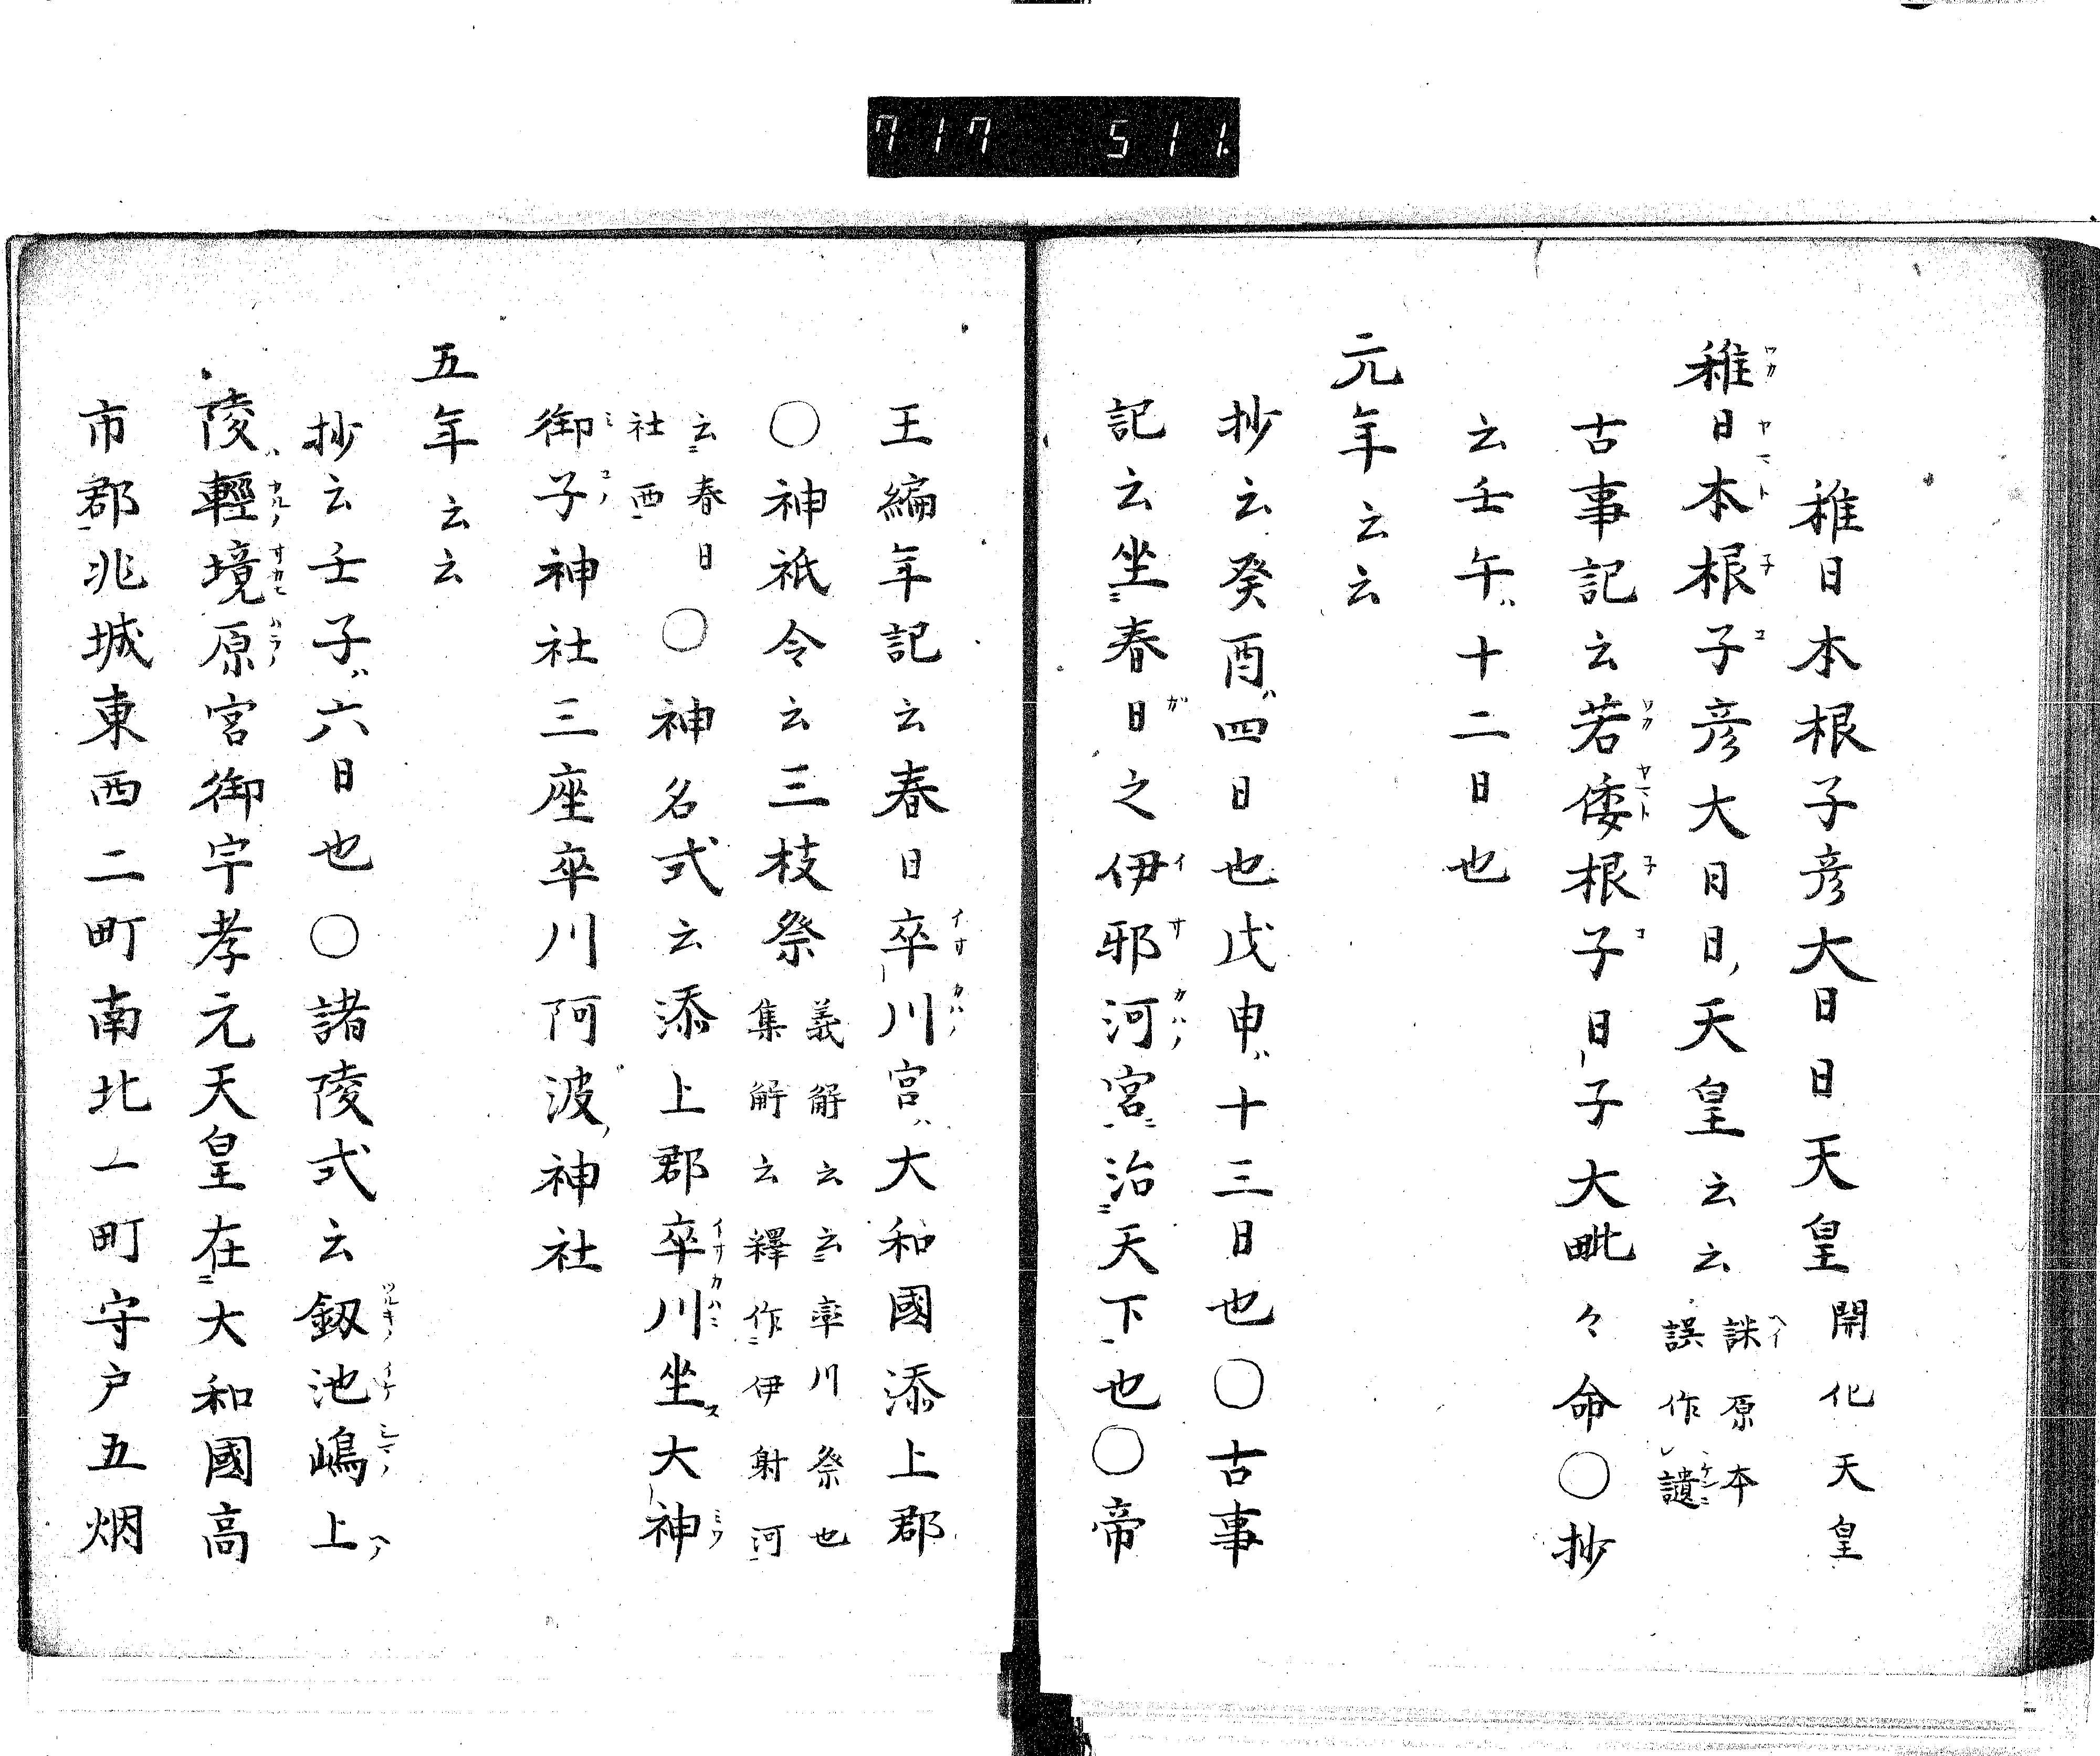 717 511
稚日本根子彦大日日天皇 開化天皇
稚日本根子彦大日日天皇云云 誄原本
誤作譴
古事記云若倭根子日子大毗々命〇抄
云壬午ハ十二日也
元年云云
抄云癸酉ハ四日也戊申ハ十三日也〇古事
記云坐春日之伊邪河宮治天下也〇帝
王編年記云春日率川宮ハ大和國添上郡
〇神祇令云三枝祭 義解云云率川祭也
集解云釋作伊射河
云春日
社西
〇神名式云添上郡率川坐大神
御子神社三座率川阿波神社
五年云云
抄云壬子ハ六日也〇諸陵式云釼池嶋上
陵輕境原宮御宇孝元天皇在大和國高
市郡兆城東西二町南北一町守戸五烟